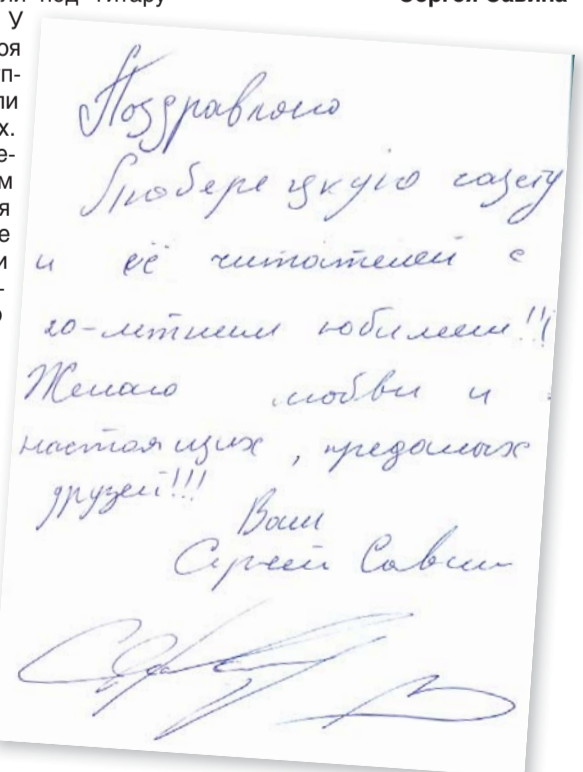 ли под гитару
Сергея Савина
У
оя
уп-
ли
х.
е-
м
я
е
и
-
о
Поздравляю
Люберецкую газету
и её читателей с
20-летним юбилеем!!!
Желаю любви и
настоящих, преданных
друзей!!!
Ваш
Сергей Савин